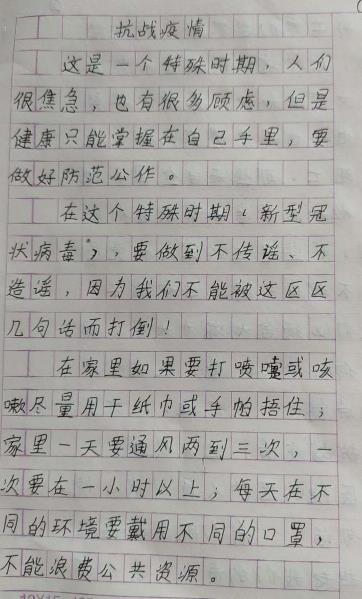 抗战疫情
这是一个特殊时期，人们
很焦急，也有很多顾虑，但是
健康只能掌握在自己手里，要
做好防范公作。
在这个特殊时期（新型冠
状病毒），要做到不传谣、不
造谣，因为我们不能被这区区
几句话而打倒！
在家里如果要打喷嚏或咳
嗽尽量用干纸巾或手帕捂住；
家里一天要通风两到三次，一
次要在一小时以上；每天在不
同的环境要戴用不同的口罩，
不能浪费公共资源。